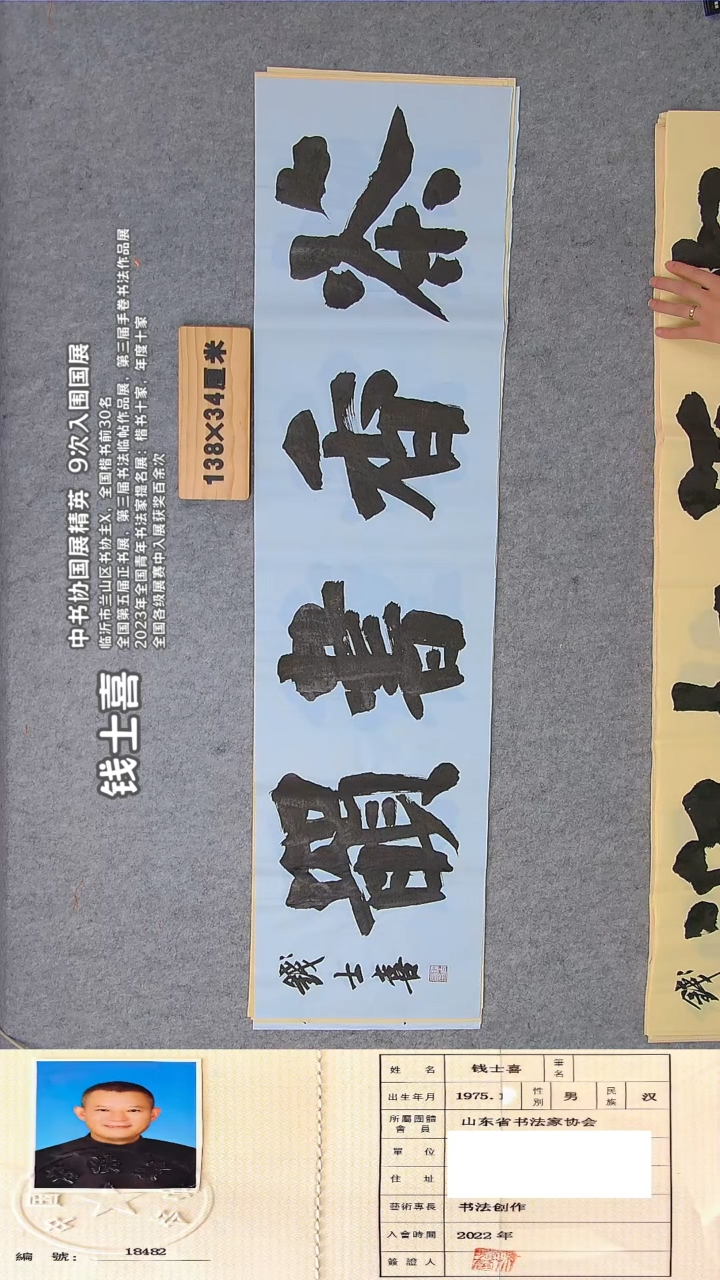 中书协国展精英 9次入围国展
临沂市兰山区书协主X，全国楷书前30名
全国第五届正书展，第三届书法临帖作品展，第三届手卷书法作品展
2023年全国青年书法家提名展；楷书十家，年度十家
全国各级展赛中入展获奖百余次
钱士喜
138×34厘米
茶香書韻
錢士喜
錢
編號：18482
姓名 钱士喜 筆名
出生年月 1975. 性別 男 民族 汉
所屬團體會員 山东省书法家协会
單位
住址
藝術專長 书法创作
入會時間 2022年
簽證人